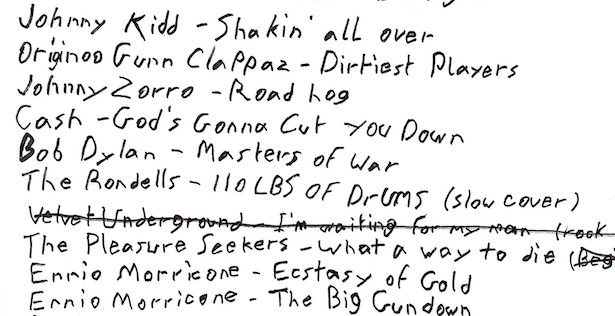 Johnny Kidd - Shakin' all over
Originoo Gunn Clappaz - Dirtiest Players
Johnny Zorro - Road hog
Cash - God's Gonna Cut You Down
Bob Dylan - Masters of War
The Rondells - 110 LBS OF DRUMS (slow cover)
Velvet Underground - I'm waiting for my man (
The Pleasure Seekers - What a way to die (
Ennio Morricone - Ecstasy of Gold
Ennio Morricone - The Big Gundown